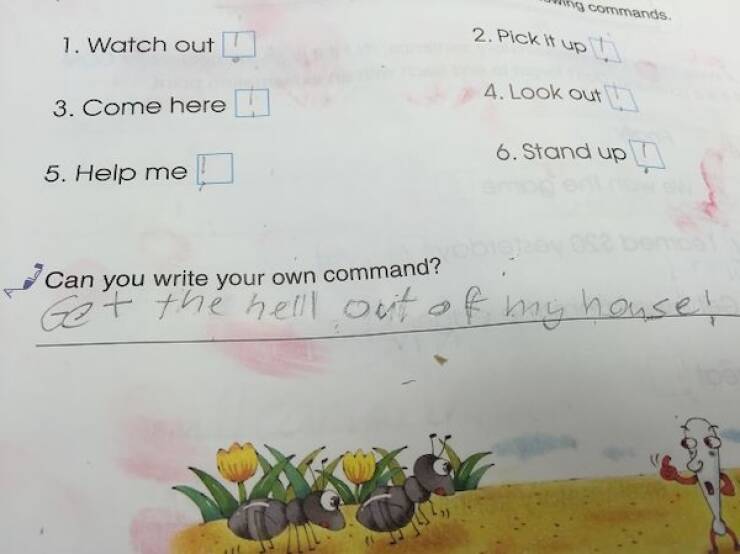 wing commands.
1. Watch out !
2. Pick it up !
3. Come here !
4. Look out !
5. Help me !
6. Stand up !
Can you write your own command?
Get the helll out of my house!